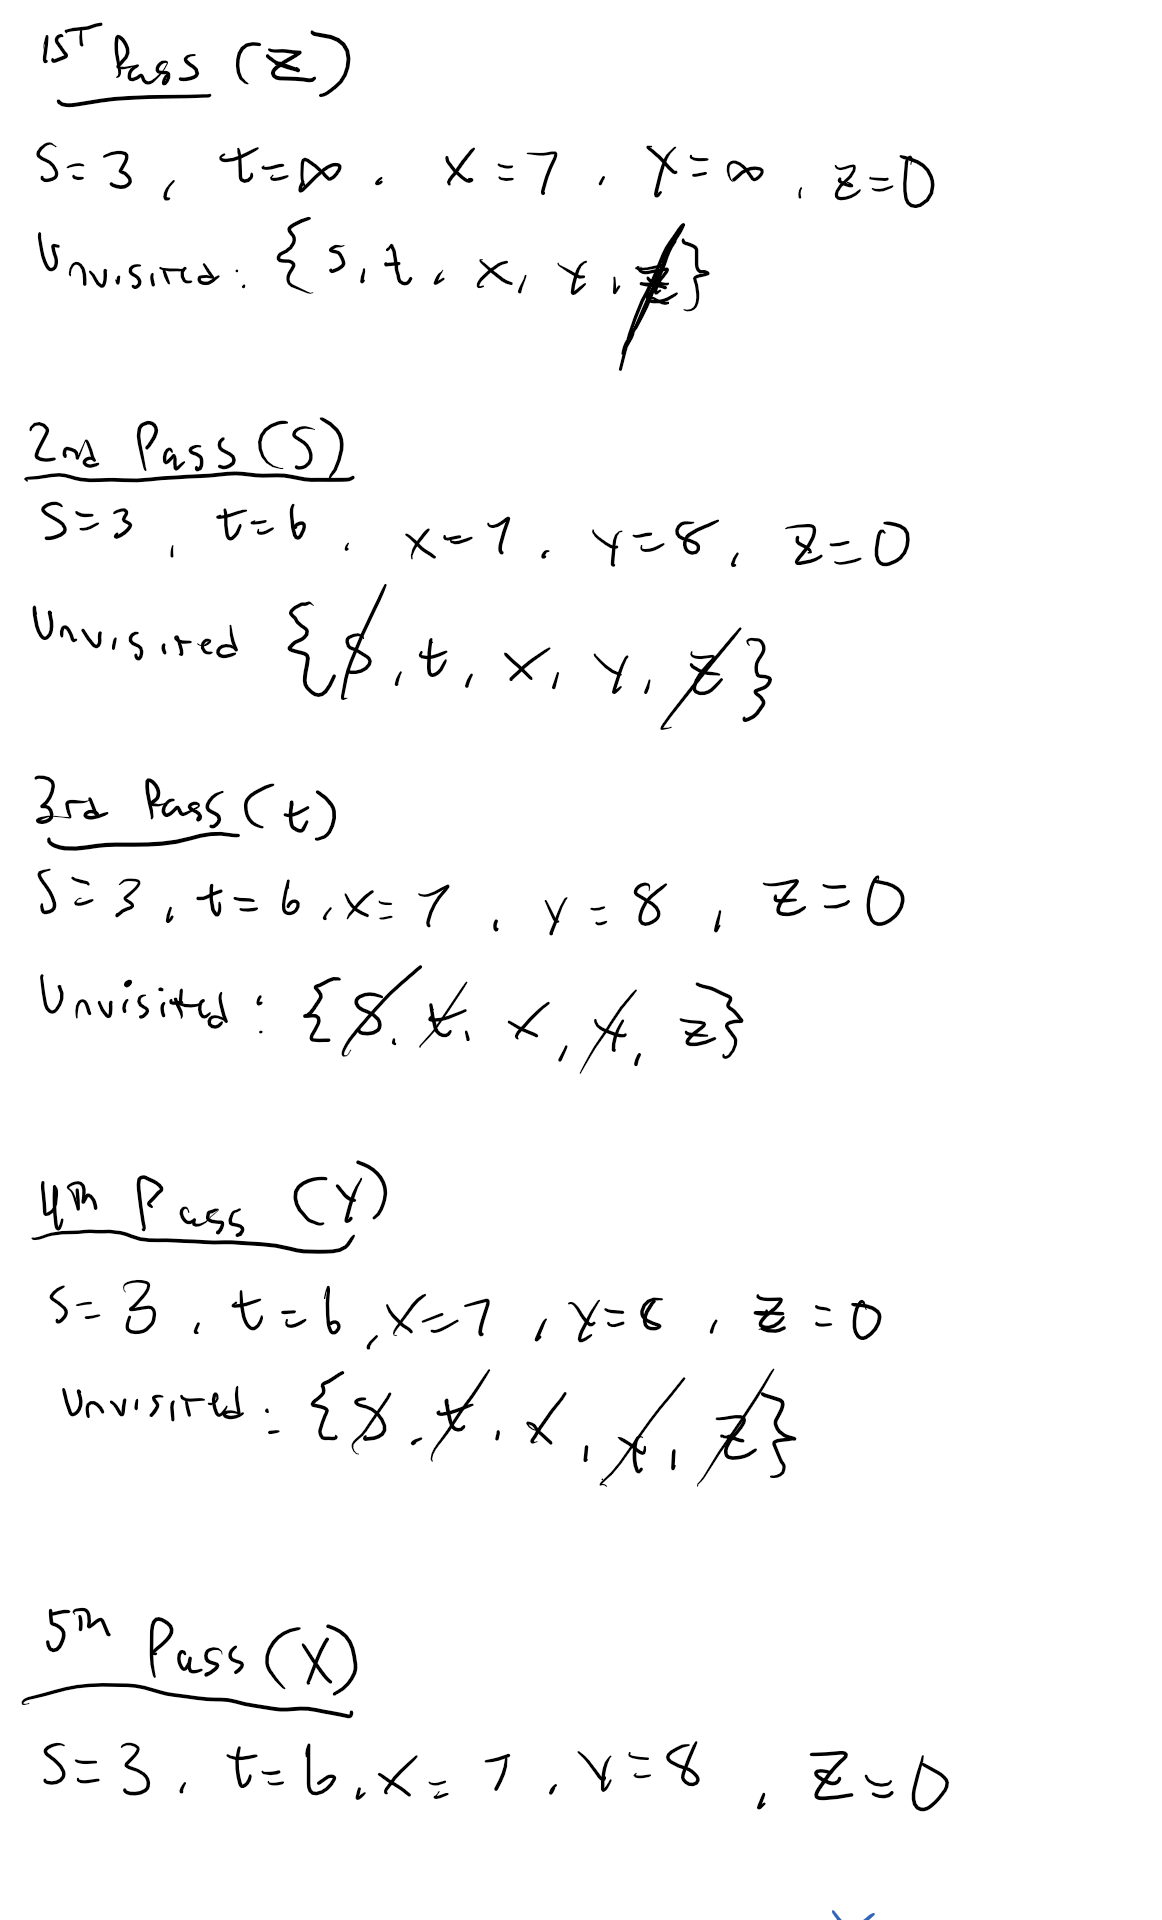 1ST Pass (Z)
S=3, t=∞, X=7, Y=∞, Z=0
Unvisited: {s, t, x, y, z}
2nd Pass (S)
S=3, t=6, x=7, y=8, Z=0
Unvisited {s, t, x, y, z}
3rd Pass (t)
S=3, t=6, x=7, y=8, Z=0
Unvisited: {s, t, x, y, z}
4Th Pass (Y)
S=3, t=6, x=7, y=8, Z=0
Unvisited: {s, t, x, y, z}
5Th Pass (X)
S=3, t=6, x=7, y=8, Z=0